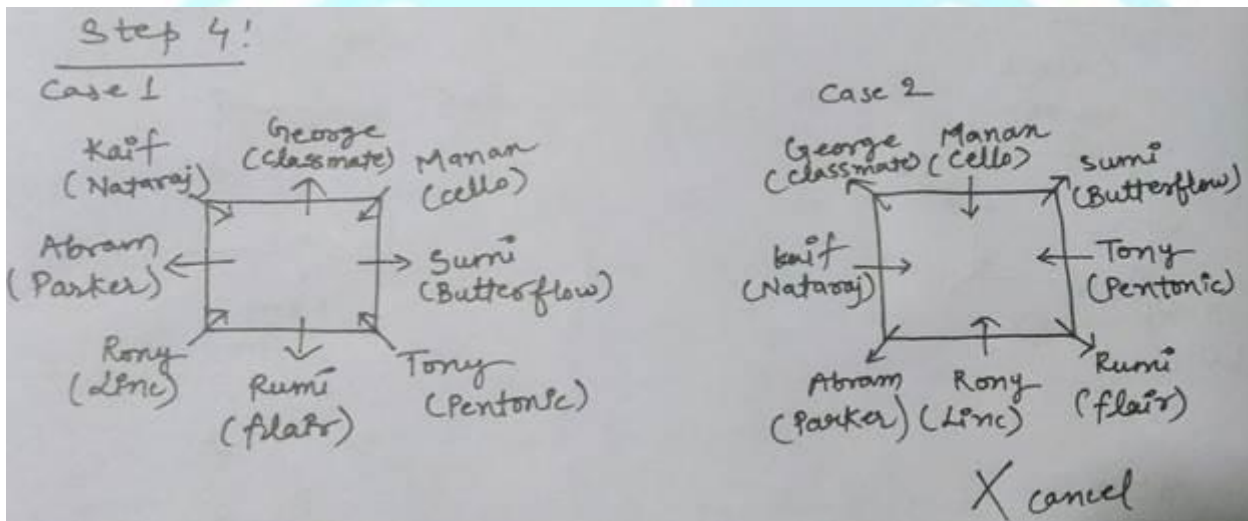 Step 4!
Case 1
Kaif
(Nataraj)
George
(Classmate)
Manan
(Cello)
Abram
(Parker)
Sumi
(Butterflow)
Rony
(Linc)
Rumi
(flair)
Tony
(Pentonic)
Case 2
George
(Classmate)
Manan
(Cello)
Sumi
(Butterflow)
Kaif
(Nataraj)
Tony
(Pentonic)
Abram
(Parker)
Rony
(Linc)
Rumi
(flair)
X cancel